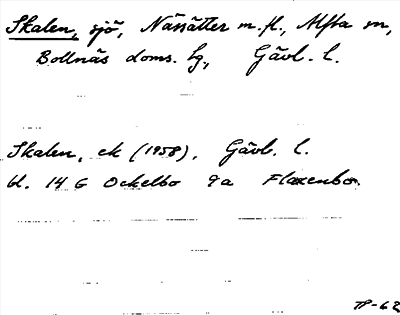 Skalen, sjö, Nässätter m.fl., Alfta sn,
Bollnäs doms. lg., Gävl. l.
Skalen, ek (1958), Gävb. l.
bl. 14 G Ockelbo 9a Flaxenbo.
TP-62